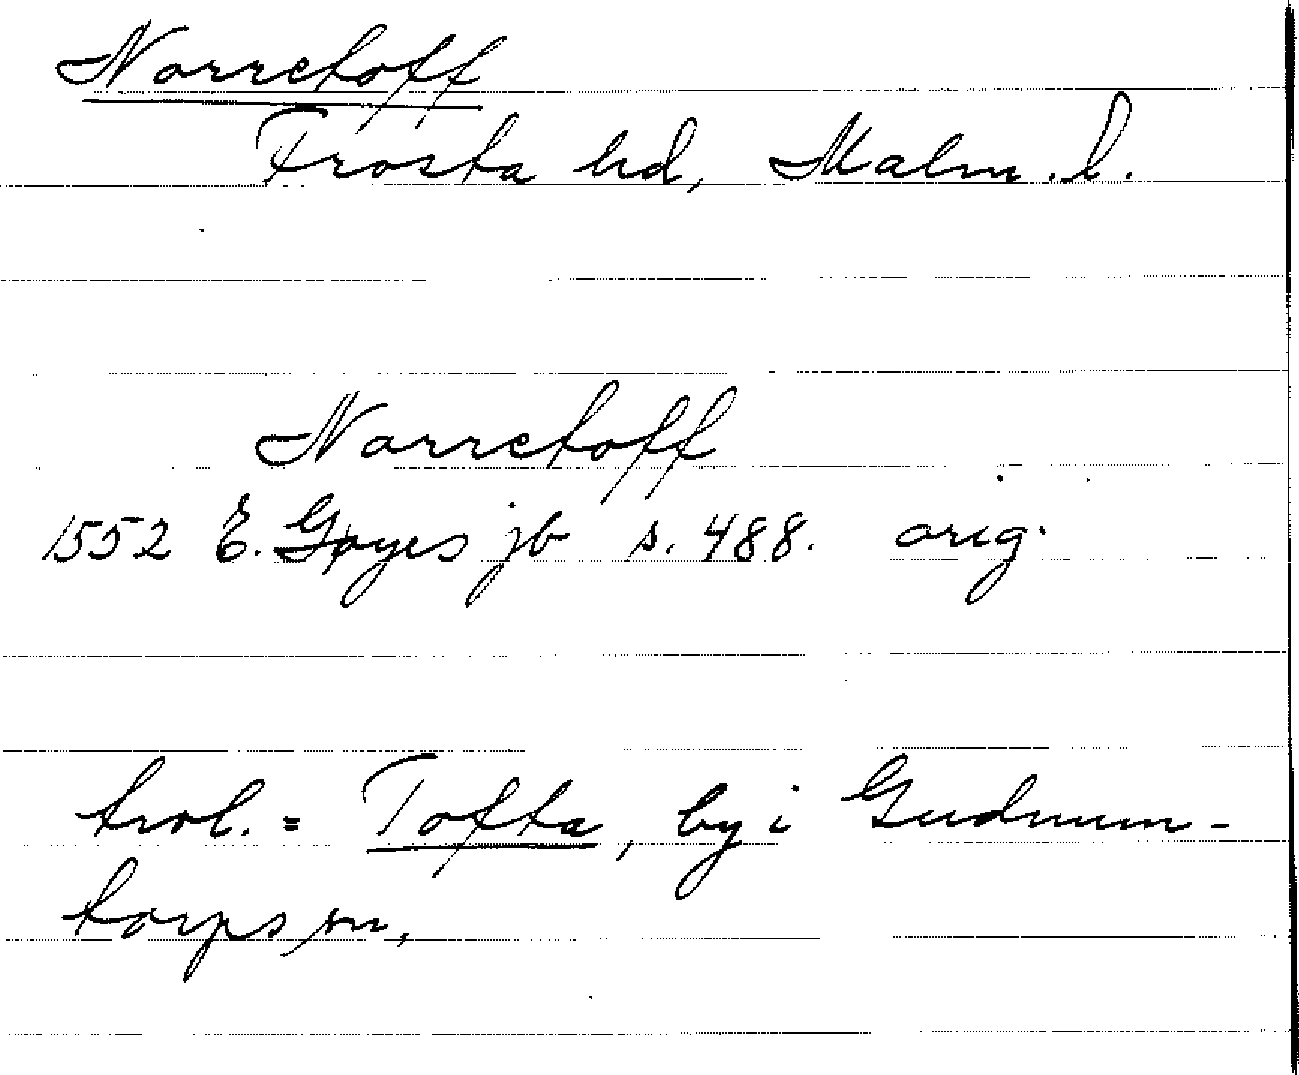 Norretofft
Frosta hd, Malm. l.
Norretofft
1552 E. Gøyes jb s. 488. orig.
trol. = Tofta, by i Gudmun-
torps sn,